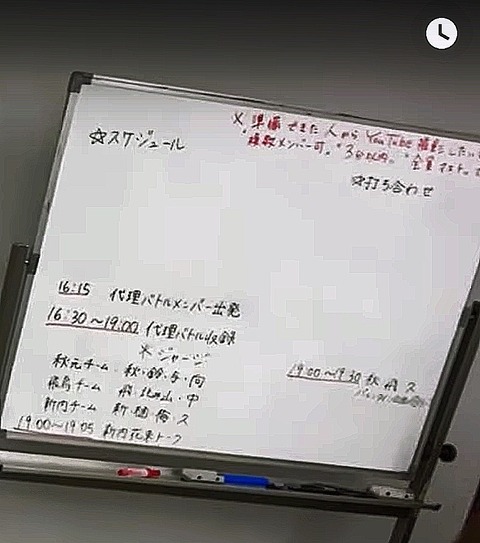 ※ 準備できた人から YouTube 撮影したい
複数メンバー可。 3分以内。 全員マスト。
☆スケジュール
☆打ち合わせ
16:15 代理バトルメンバー出発
16:30〜19:00 代理バトル収録
※ジャージ
秋元チーム 秋・鈴・与・向
飛鳥チーム 飛・北・山・中
新内チーム 新・樋・梅・久
19:00〜19:05 新内花束トーク
19:00〜19:30 秋 飛 久